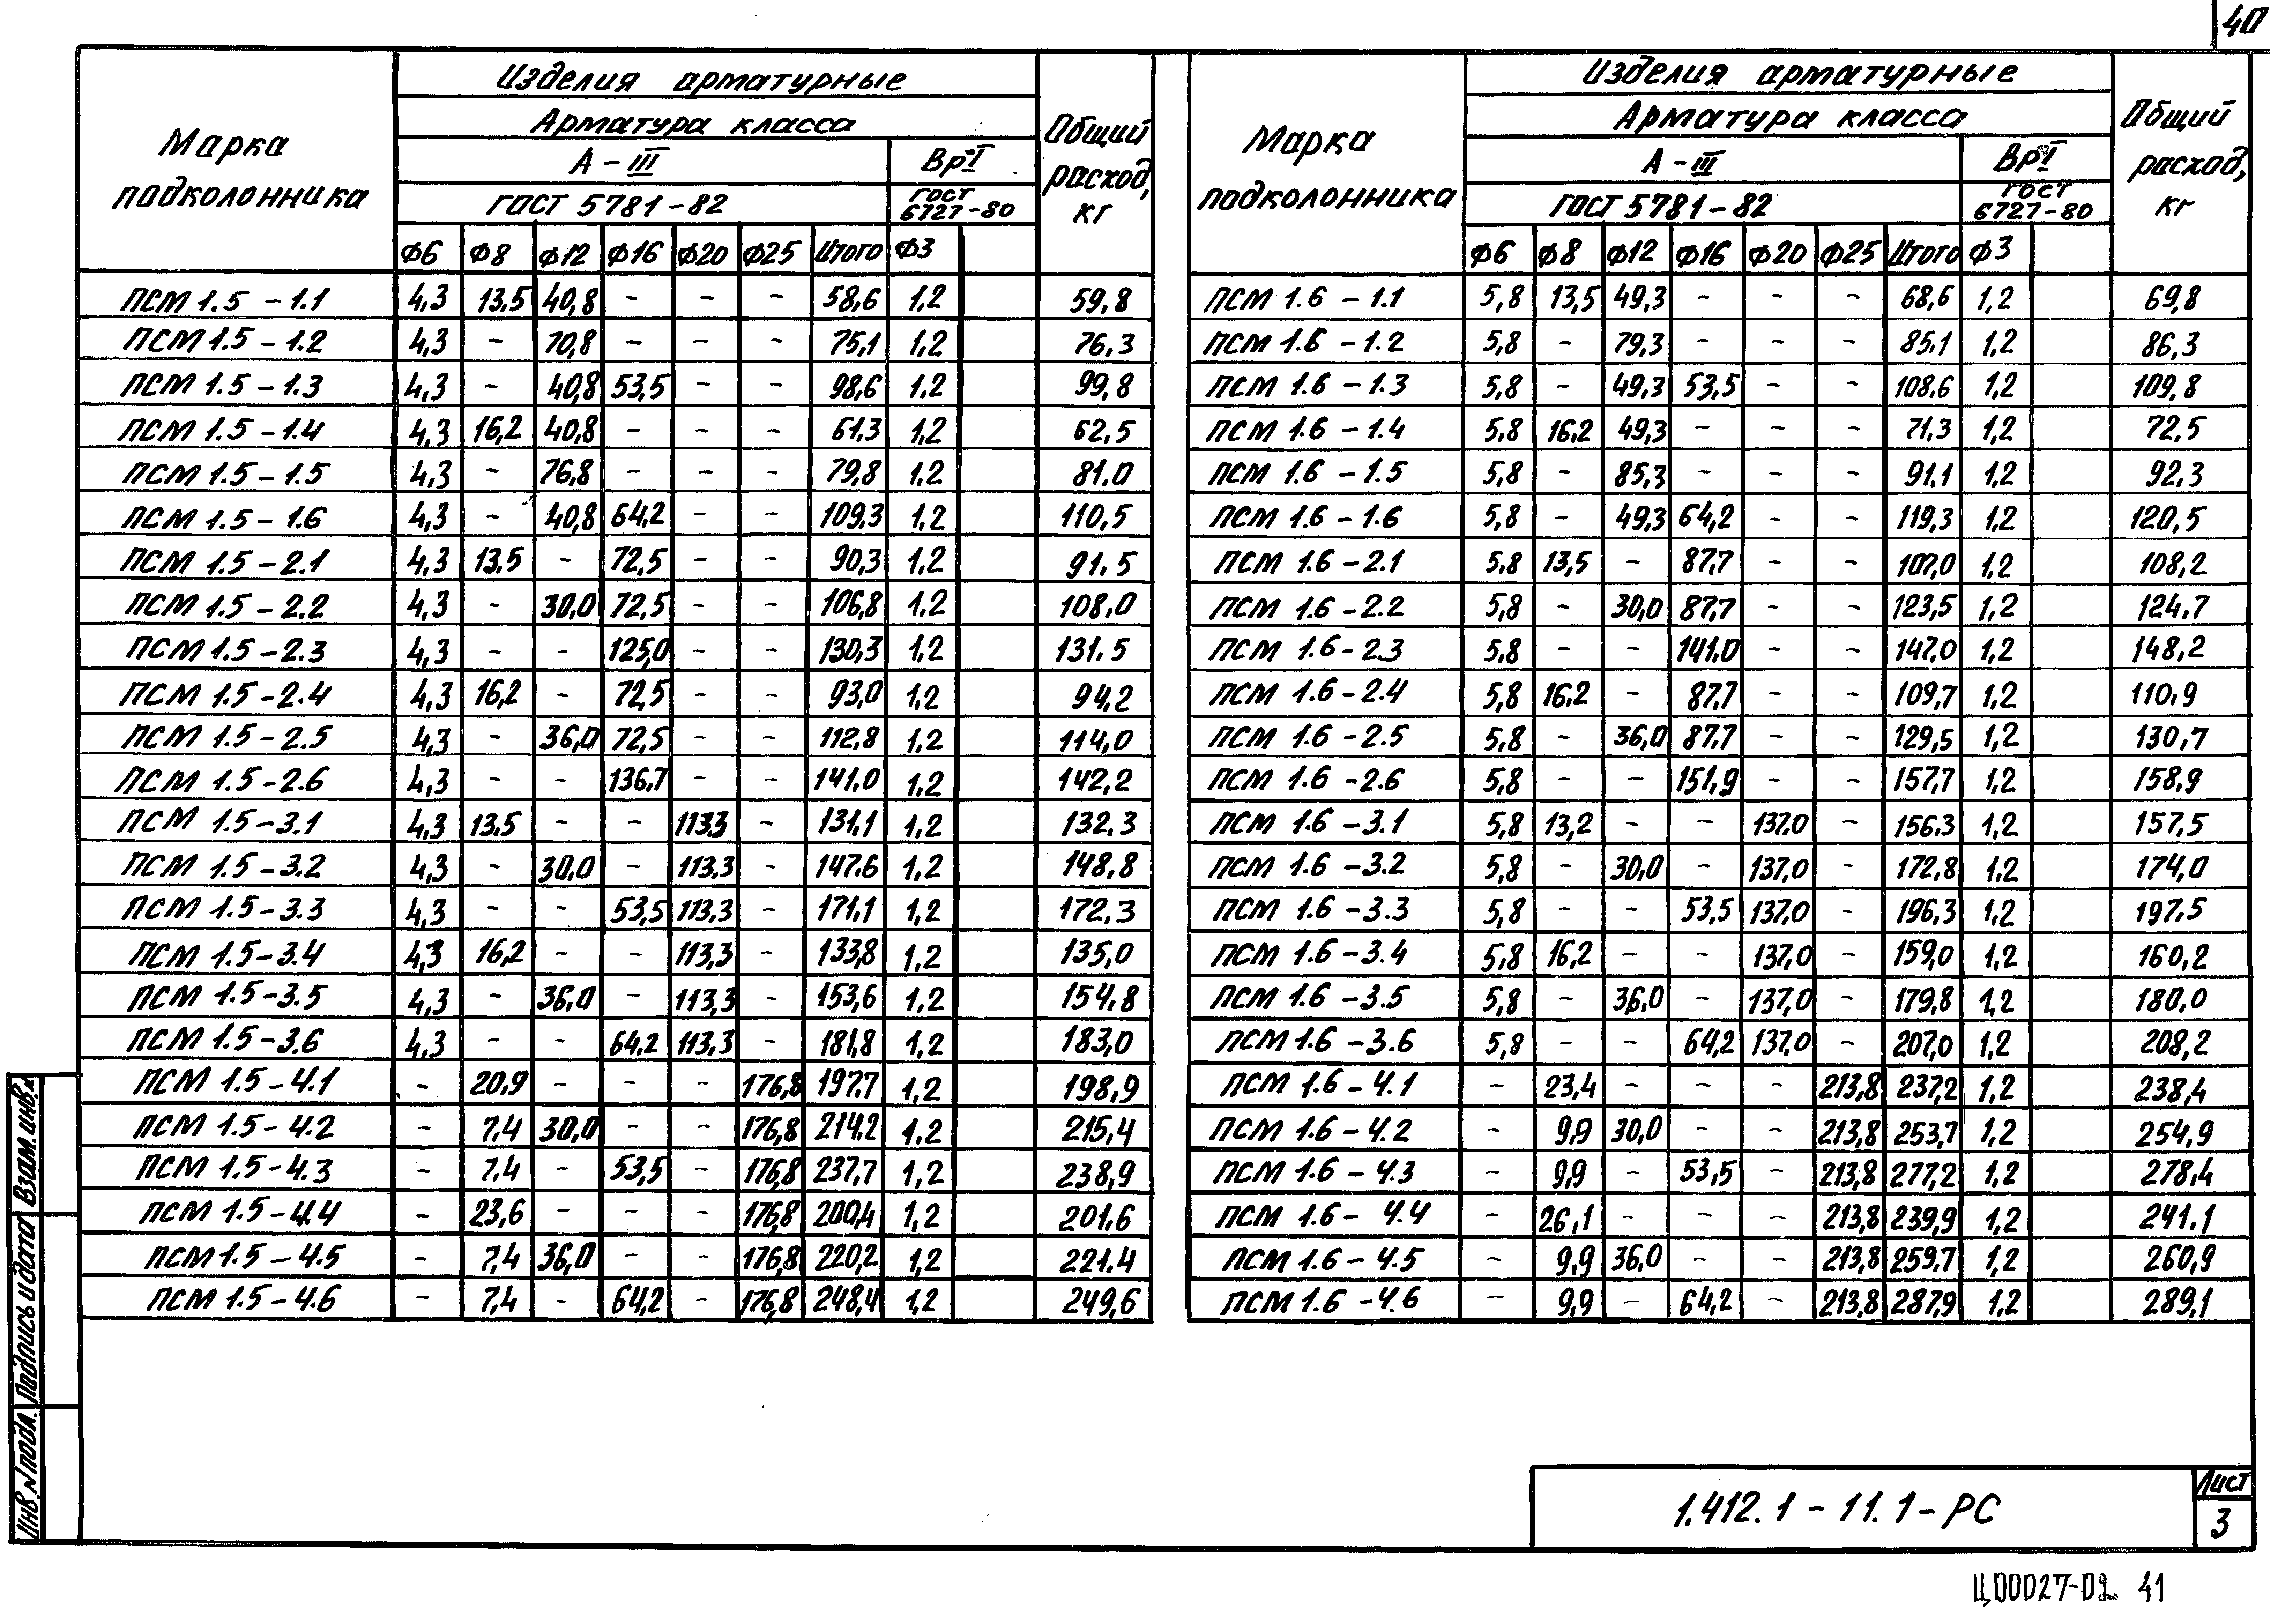 40
Марка подколонника
Изделия арматурные
Арматура класса
А-III
Вр-I
ГОСТ 5781-82
ГОСТ 6727-80
Общий расход, кг
Ф6 Ф8 Ф12 Ф16 Ф20 Ф25 Итого Ф3
ПСМ 1.5-1.1 4,3 13,5 40,8 - - - 58,6 1,2 59,8
ПСМ 1.5-1.2 4,3 - 70,8 - - - 75,1 1,2 76,3
ПСМ 1.5-1.3 4,3 - 40,8 53,5 - - 98,6 1,2 99,8
ПСМ 1.5-1.4 4,3 16,2 40,8 - - - 61,3 1,2 62,5
ПСМ 1.5-1.5 4,3 - 76,8 - - - 79,8 1,2 81,0
ПСМ 1.5-1.6 4,3 - 40,8 64,2 - - 109,3 1,2 110,5
ПСМ 1.5-2.1 4,3 13,5 - 72,5 - - 90,3 1,2 91,5
ПСМ 1.5-2.2 4,3 - 30,0 72,5 - - 106,8 1,2 108,0
ПСМ 1.5-2.3 4,3 - - 125,0 - - 130,3 1,2 131,5
ПСМ 1.5-2.4 4,3 16,2 - 72,5 - - 93,0 1,2 94,2
ПСМ 1.5-2.5 4,3 - 36,0 72,5 - - 112,8 1,2 114,0
ПСМ 1.5-2.6 4,3 - - 136,7 - - 141,0 1,2 142,2
ПСМ 1.5-3.1 4,3 13,5 - - 113,3 - 131,1 1,2 132,3
ПСМ 1.5-3.2 4,3 - 30,0 - 113,3 - 147,6 1,2 148,8
ПСМ 1.5-3.3 4,3 - - 53,5 113,3 - 171,1 1,2 172,3
ПСМ 1.5-3.4 4,3 16,2 - - 113,3 - 133,8 1,2 135,0
ПСМ 1.5-3.5 4,3 - 36,0 - 113,3 - 153,6 1,2 154,8
ПСМ 1.5-3.6 4,3 - - 64,2 113,3 - 181,8 1,2 183,0
ПСМ 1.5-4.1 - 20,9 - - - 176,8 197,7 1,2 198,9
ПСМ 1.5-4.2 - 7,4 30,0 - - 176,8 214,2 1,2 215,4
ПСМ 1.5-4.3 - 7,4 - 53,5 - 176,8 237,7 1,2 238,9
ПСМ 1.5-4.4 - 23,6 - - - 176,8 200,4 1,2 201,6
ПСМ 1.5-4.5 - 7,4 36,0 - - 176,8 220,2 1,2 221,4
ПСМ 1.5-4.6 - 7,4 - 64,2 - 176,8 248,4 1,2 249,6
Марка подколонника
Изделия арматурные
Арматура класса
А-III
Вр-I
ГОСТ 5781-82
ГОСТ 6727-80
Общий расход, кг
Ф6 Ф8 Ф12 Ф16 Ф20 Ф25 Итого Ф3
ПСМ 1.6-1.1 5,8 13,5 49,3 - - - 68,6 1,2 69,8
ПСМ 1.6-1.2 5,8 - 79,3 - - - 85,1 1,2 86,3
ПСМ 1.6-1.3 5,8 - 49,3 53,5 - - 108,6 1,2 109,8
ПСМ 1.6-1.4 5,8 16,2 49,3 - - - 71,3 1,2 72,5
ПСМ 1.6-1.5 5,8 - 85,3 - - - 91,1 1,2 92,3
ПСМ 1.6-1.6 5,8 - 49,3 64,2 - - 119,3 1,2 120,5
ПСМ 1.6-2.1 5,8 13,5 - 87,7 - - 107,0 1,2 108,2
ПСМ 1.6-2.2 5,8 - 30,0 87,7 - - 123,5 1,2 124,7
ПСМ 1.6-2.3 5,8 - - 141,0 - - 147,0 1,2 148,2
ПСМ 1.6-2.4 5,8 16,2 - 87,7 - - 109,7 1,2 110,9
ПСМ 1.6-2.5 5,8 - 36,0 87,7 - - 129,5 1,2 130,7
ПСМ 1.6-2.6 5,8 - - 151,9 - - 157,7 1,2 158,9
ПСМ 1.6-3.1 5,8 13,2 - - 137,0 - 156,3 1,2 157,5
ПСМ 1.6-3.2 5,8 - 30,0 - 137,0 - 172,8 1,2 174,0
ПСМ 1.6-3.3 5,8 - - 53,5 137,0 - 196,3 1,2 197,5
ПСМ 1.6-3.4 5,8 16,2 - - 137,0 - 159,0 1,2 160,2
ПСМ 1.6-3.5 5,8 - 36,0 - 137,0 - 179,8 1,2 180,0
ПСМ 1.6-3.6 5,8 - - 64,2 137,0 - 207,0 1,2 208,2
ПСМ 1.6-4.1 - 23,4 - - - 213,8 237,2 1,2 238,4
ПСМ 1.6-4.2 - 9,9 30,0 - - 213,8 253,7 1,2 254,9
ПСМ 1.6-4.3 - 9,9 - 53,5 - 213,8 277,2 1,2 278,4
ПСМ 1.6-4.4 - 26,1 - - - 213,8 239,9 1,2 241,1
ПСМ 1.6-4.5 - 9,9 36,0 - - 213,8 259,7 1,2 260,9
ПСМ 1.6-4.6 - 9,9 - 64,2 - 213,8 287,9 1,2 289,1
Взам. инв. №
Подпись и дата
Инв. № подл.
1.412.1-11.1-РС
Лист
3
Ц00027-02 41